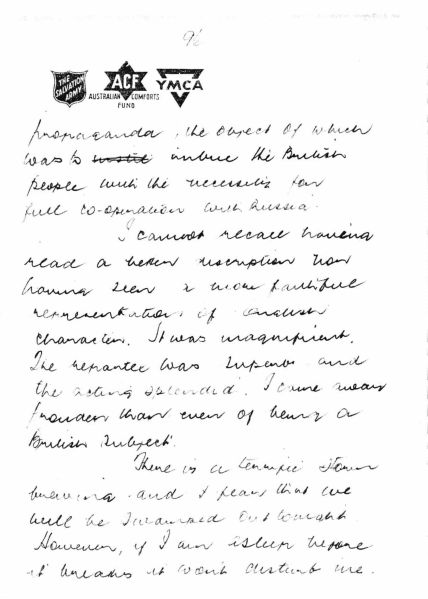 96
THE SALVATION ARMY
ACF
AUSTRALIAN COMFORTS FUND
YMCA
propaganda, the object of which
was to imbue the British
people with the necessity for
full co-operation with Russia.
I cannot recall having
read a better description nor
having seen a more faithful
representation of English
character. It was magnificent.
The repartee was superb and
the acting splendid. I came away
prouder than ever of being a
British Subject.
There is a terrific storm
brewing and I fear that we
will be swamped out tonight.
However, if I am asleep before
it breaks it won't disturb me.